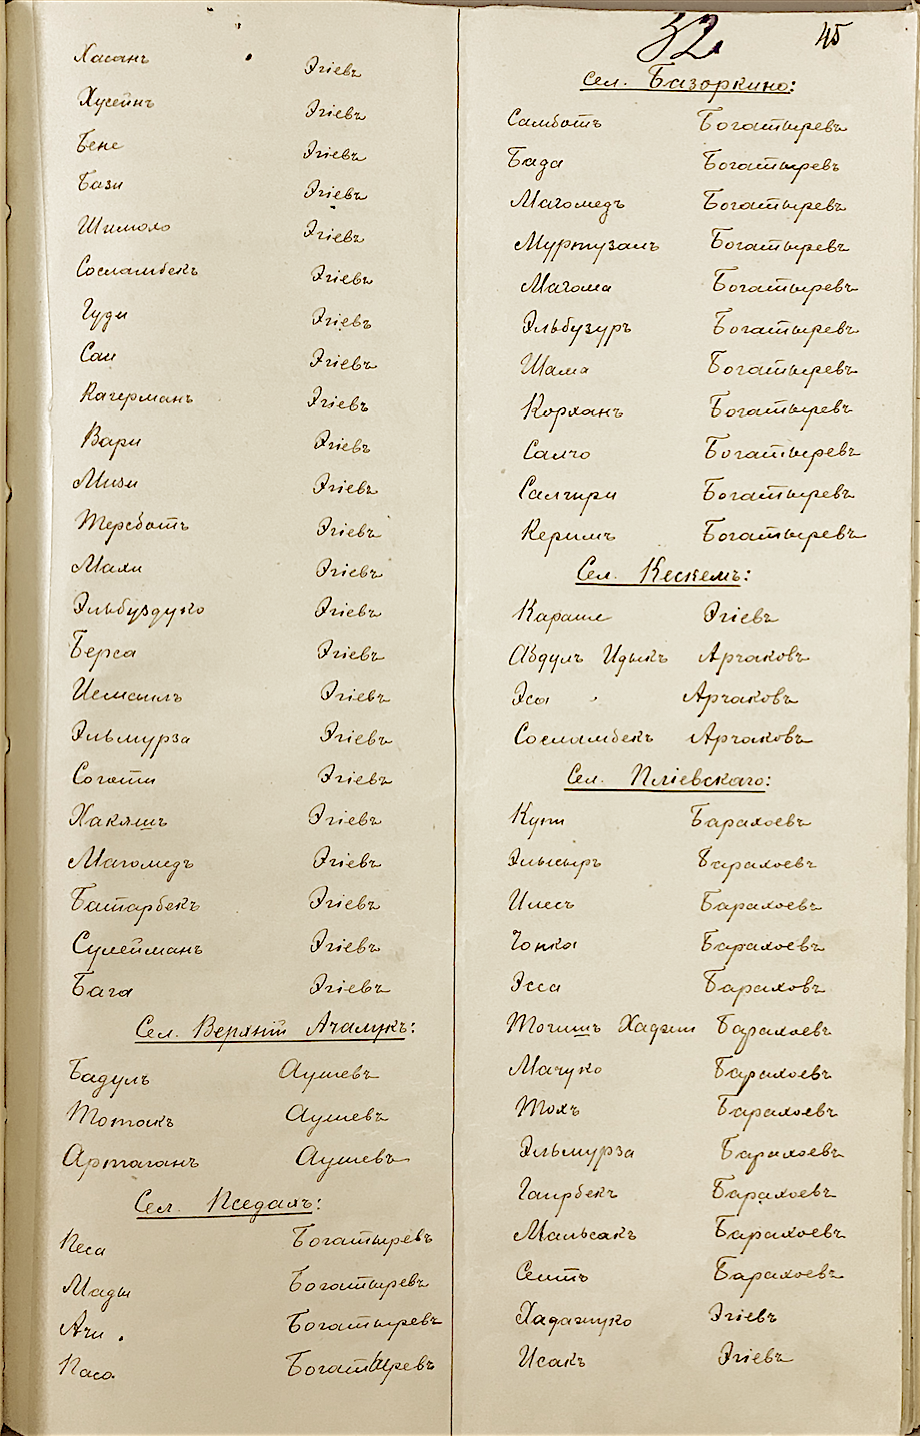 Хасанъ Эгіевъ
Хусейнъ Эгіевъ
Бене Эгіевъ
Бази Эгіевъ
Шимоло Эгіевъ
Сосламбекъ Эгіевъ
Гуди Эгіевъ
Саи Эгіевъ
Кагерманъ Эгіевъ
Вари Эгіевъ
Мизи Эгіевъ
Терсботъ Эгіевъ
Мали Эгіевъ
Эльбуздуко Эгіевъ
Берса Эгіевъ
Исмаилъ Эгіевъ
Эльмурза Эгіевъ
Соготи Эгіевъ
Хакяшъ Эгіевъ
Магомедъ Эгіевъ
Батарбекъ Эгіевъ
Сулейманъ Эгіевъ
Бага Эгіевъ
Сел. Верхній Ачалукъ:
Бадулъ Аушевъ
Тотакъ Аушевъ
Артаганъ Аушевъ
Сел. Пседахъ:
Песа Богатыревъ
Мады Богатыревъ
Ачи Богатыревъ
Паса Богатыревъ
32 45
Сел. Базоркино:
Самботъ Богатыревъ
Бада Богатыревъ
Магомедъ Богатыревъ
Муртузалъ Богатыревъ
Магома Богатыревъ
Эльбузуръ Богатыревъ
Шама Богатыревъ
Корханъ Богатыревъ
Салчо Богатыревъ
Салгири Богатыревъ
Керимъ Богатыревъ
Сел. Кескемъ:
Караше Эгіевъ
Абдулъ Идыкъ Арчаковъ
Эса Арчаковъ
Сосламбекъ Арчаковъ
Сел. Пліевскаго:
Купи Барахоевъ
Эльсыръ Барахоевъ
Илесъ Барахоевъ
Чонка Барахоевъ
Эсса Бараховъ
Тогишъ Хаджи Барахоевъ
Мачуко Барахоевъ
Тохъ Барахоевъ
Эльмурза Барахоевъ
Гаирбекъ Барахоевъ
Мальсакъ Барахоевъ
Сеитъ Барахоевъ
Хадажуко Эгіевъ
Исакъ Эгіевъ